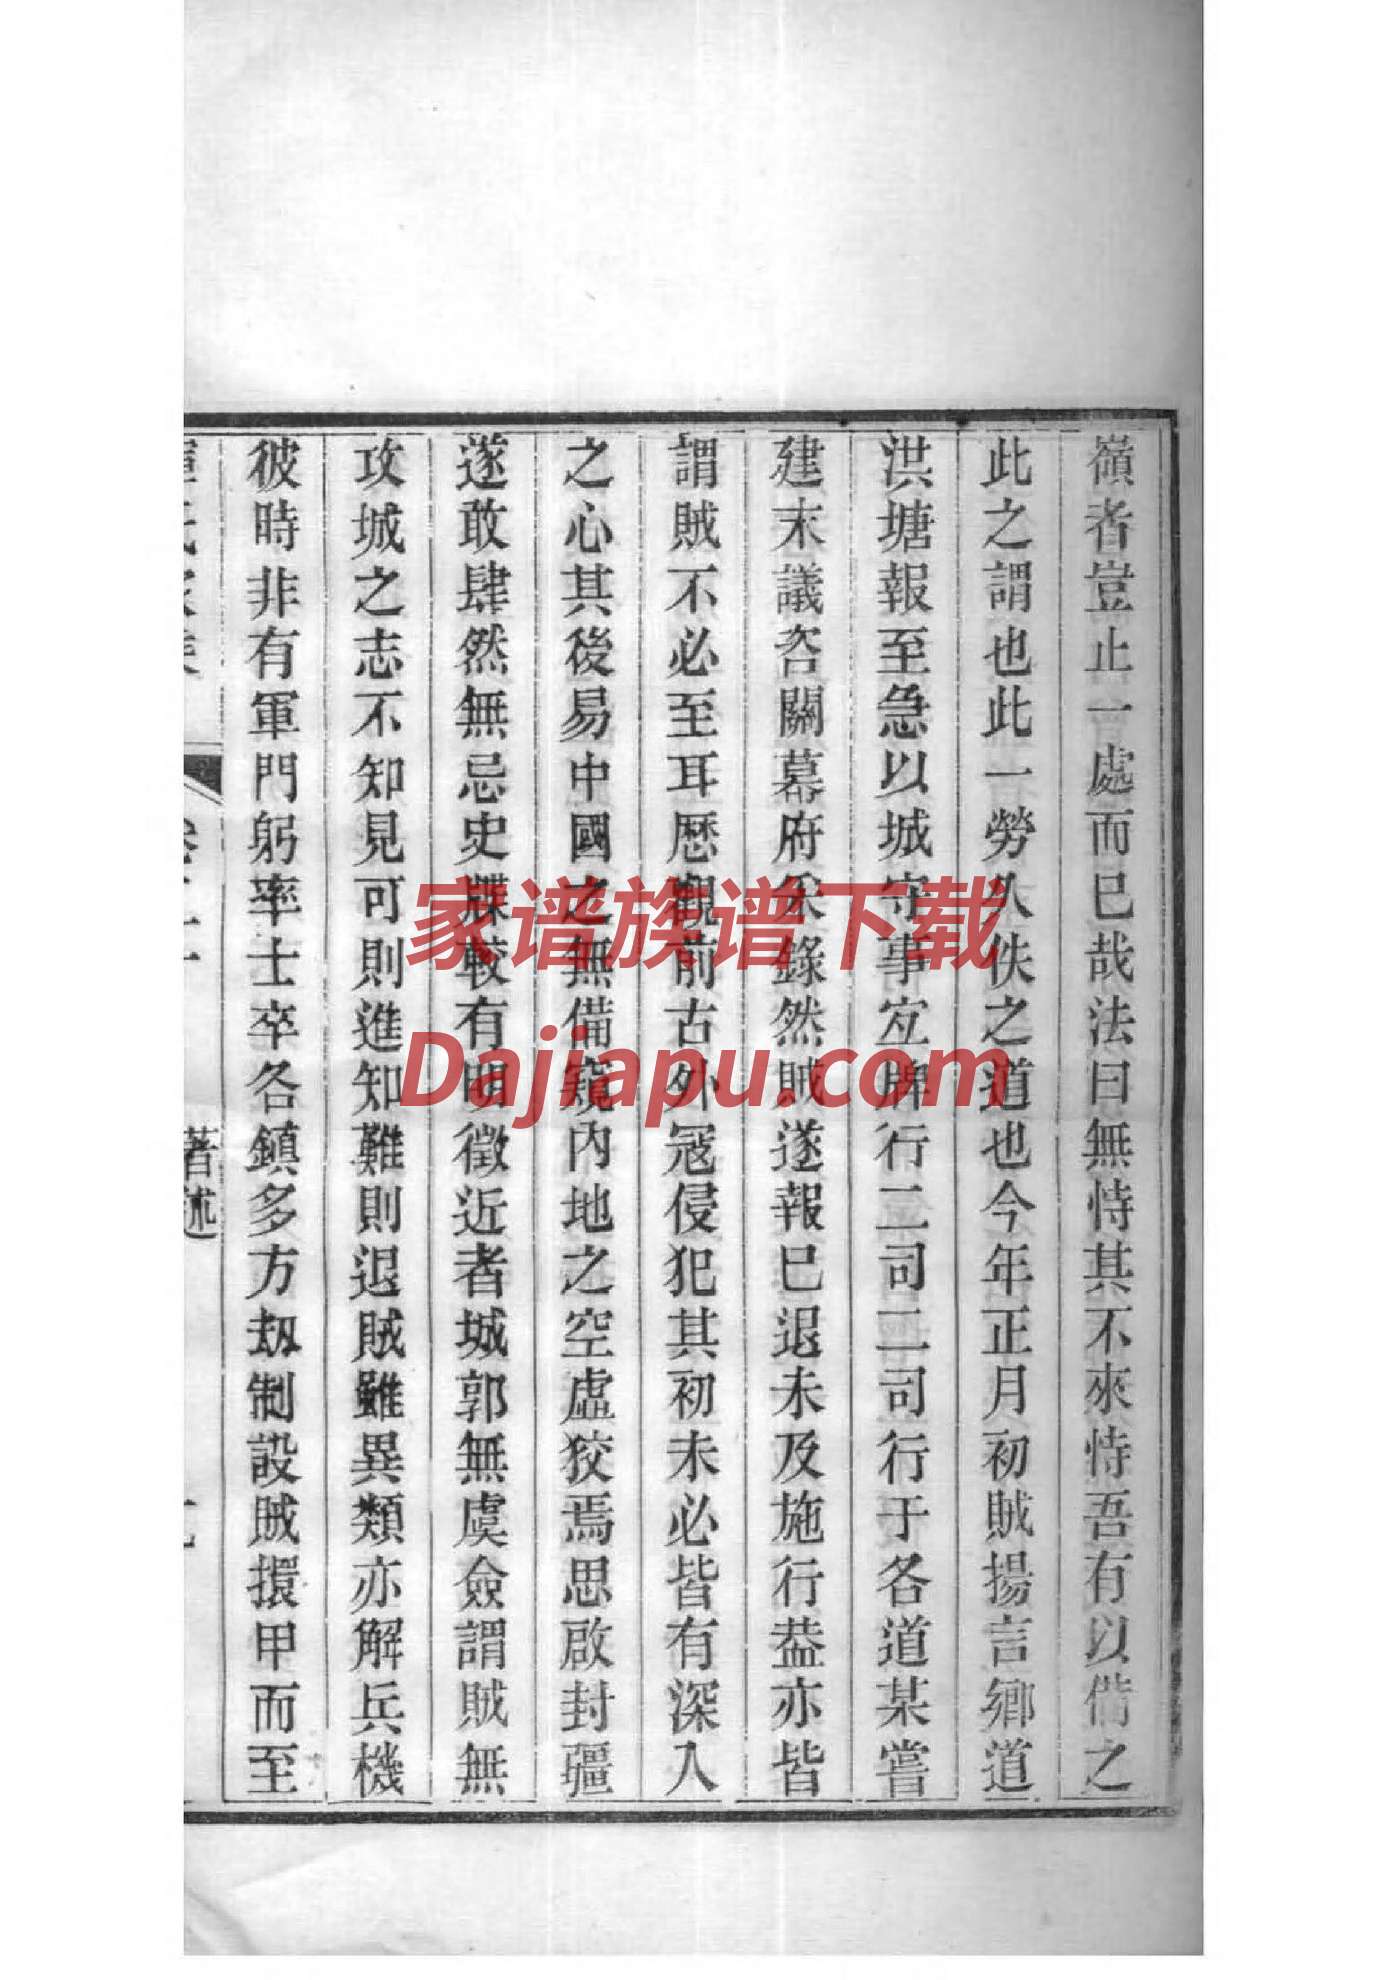 嶺者豈止一處而已哉法曰無恃其不來恃吾有以偹之
此之謂也此一勞久佚之道也今年正月初賊揚言鄉道
洪塘報至急以城守事宐牌行二司二司行于各道某嘗
建末議咨關幕府采錄然賊遂報已退未及施行葢亦皆
謂賊不必至耳歷觀前古外冦侵犯其初未必皆有深入
之心其後易中國之無備窺內地之空虛狡焉思啟封疆
遂敢肆然無忌史牒較有明徵近者城郭無虞僉謂賊無
攻城之志不知見可則進知難則退賊雖異類亦解兵機
彼時非有軍門躬率士卒各鎮多方刼制設賊擐甲而至
著述
家谱族谱下载
Dajiapu.com